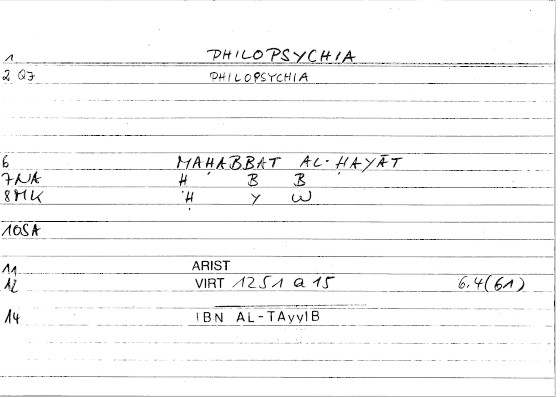 1 PHILOPSYCHIA
2 QJ PHILOPSYCHIA
6 MAḤABBAT AL-ḤAYĀT
7NA H B B
8MK Ḥ Y W
10SA
11 ARIST
12 VIRT 1251 a 15 6.4(61)
14 IBN AL-TAyyIB